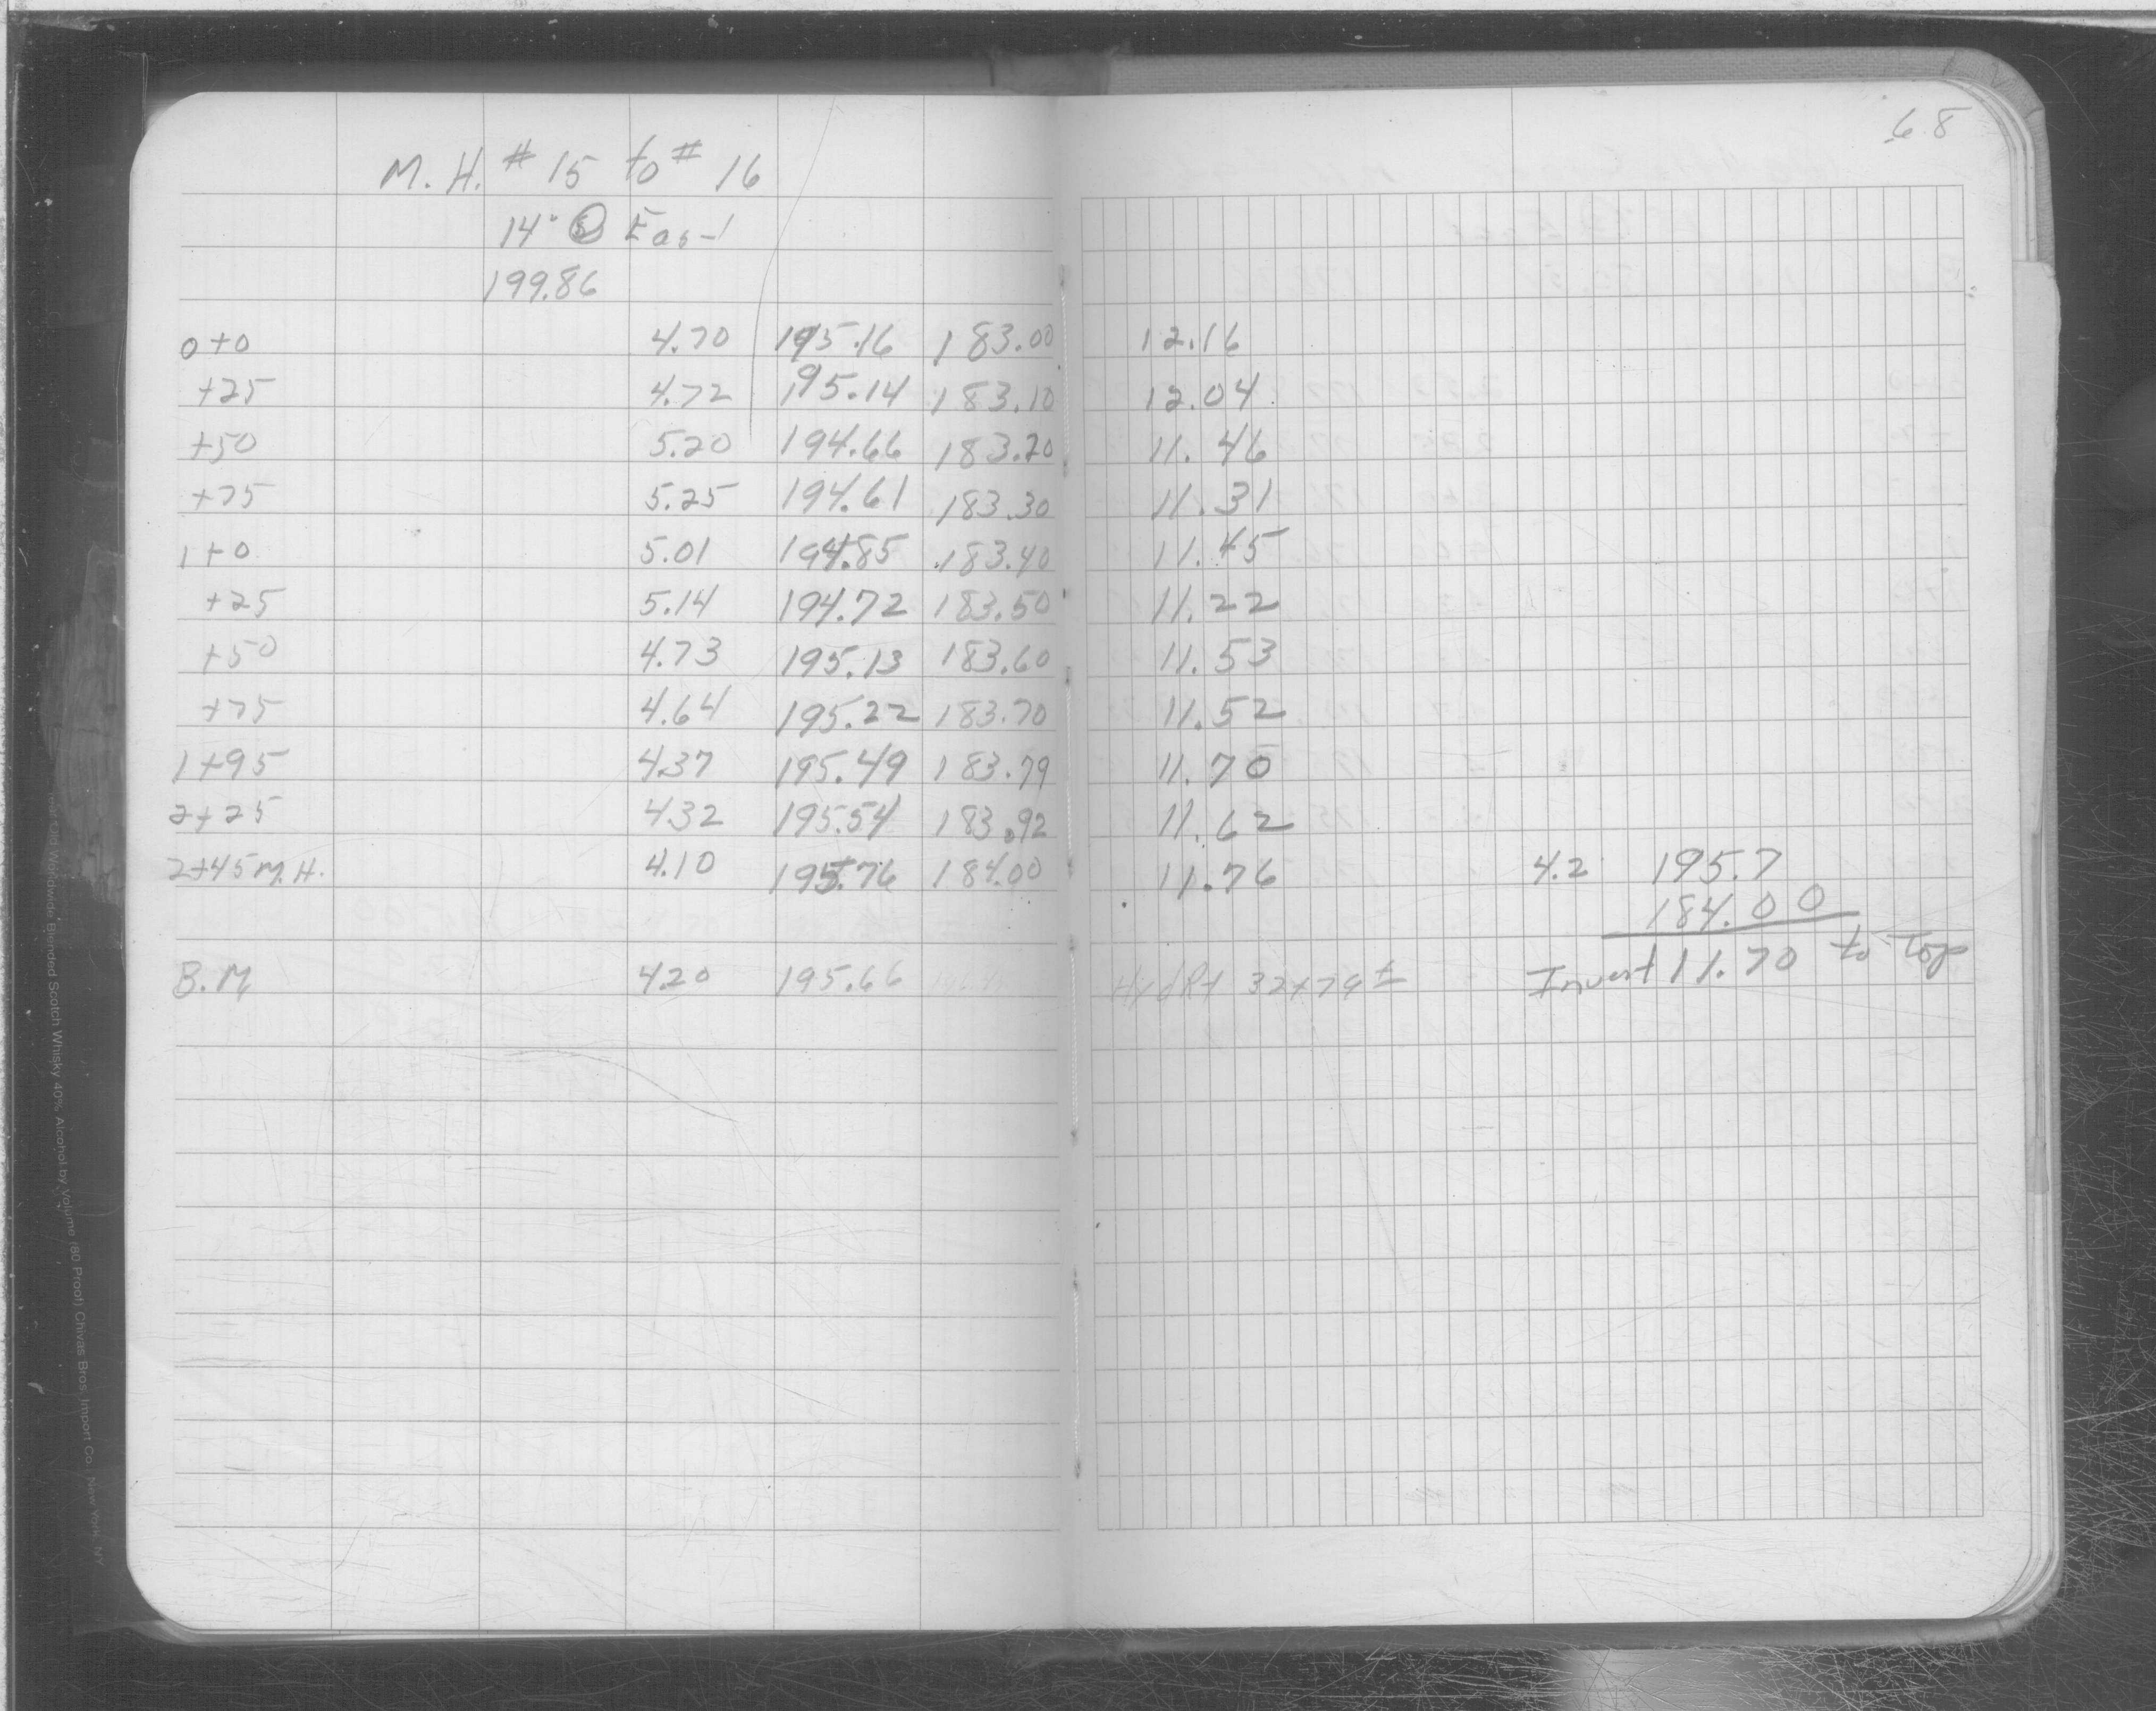 68
M. H. # 15 to # 16
14' East
199.86
0+0 4.70 195.16 183.00 12.16
+25 4.72 195.14 183.10 12.04
+50 5.20 194.66 183.20 11.46
+75 5.25 194.61 183.30 11.31
1+0 5.01 194.85 183.40 11.45
+25 5.14 194.72 183.50 11.22
+50 4.73 195.13 183.60 11.53
+75 4.64 195.22 183.70 11.52
1+95 4.37 195.49 183.79 11.70
2+25 4.32 195.54 183.92 11.62
2+45 M.H. 4.10 195.76 184.00 11.76 4.2 195.7
184.00
B.M 4.20 195.66 Hydrt 32+79± Invert 11.70 to Top
Worldwide Blended Scotch Whisky 40% Alcohol by Volume (80 Proof) Chivas Bros. Import Co. New York, NY